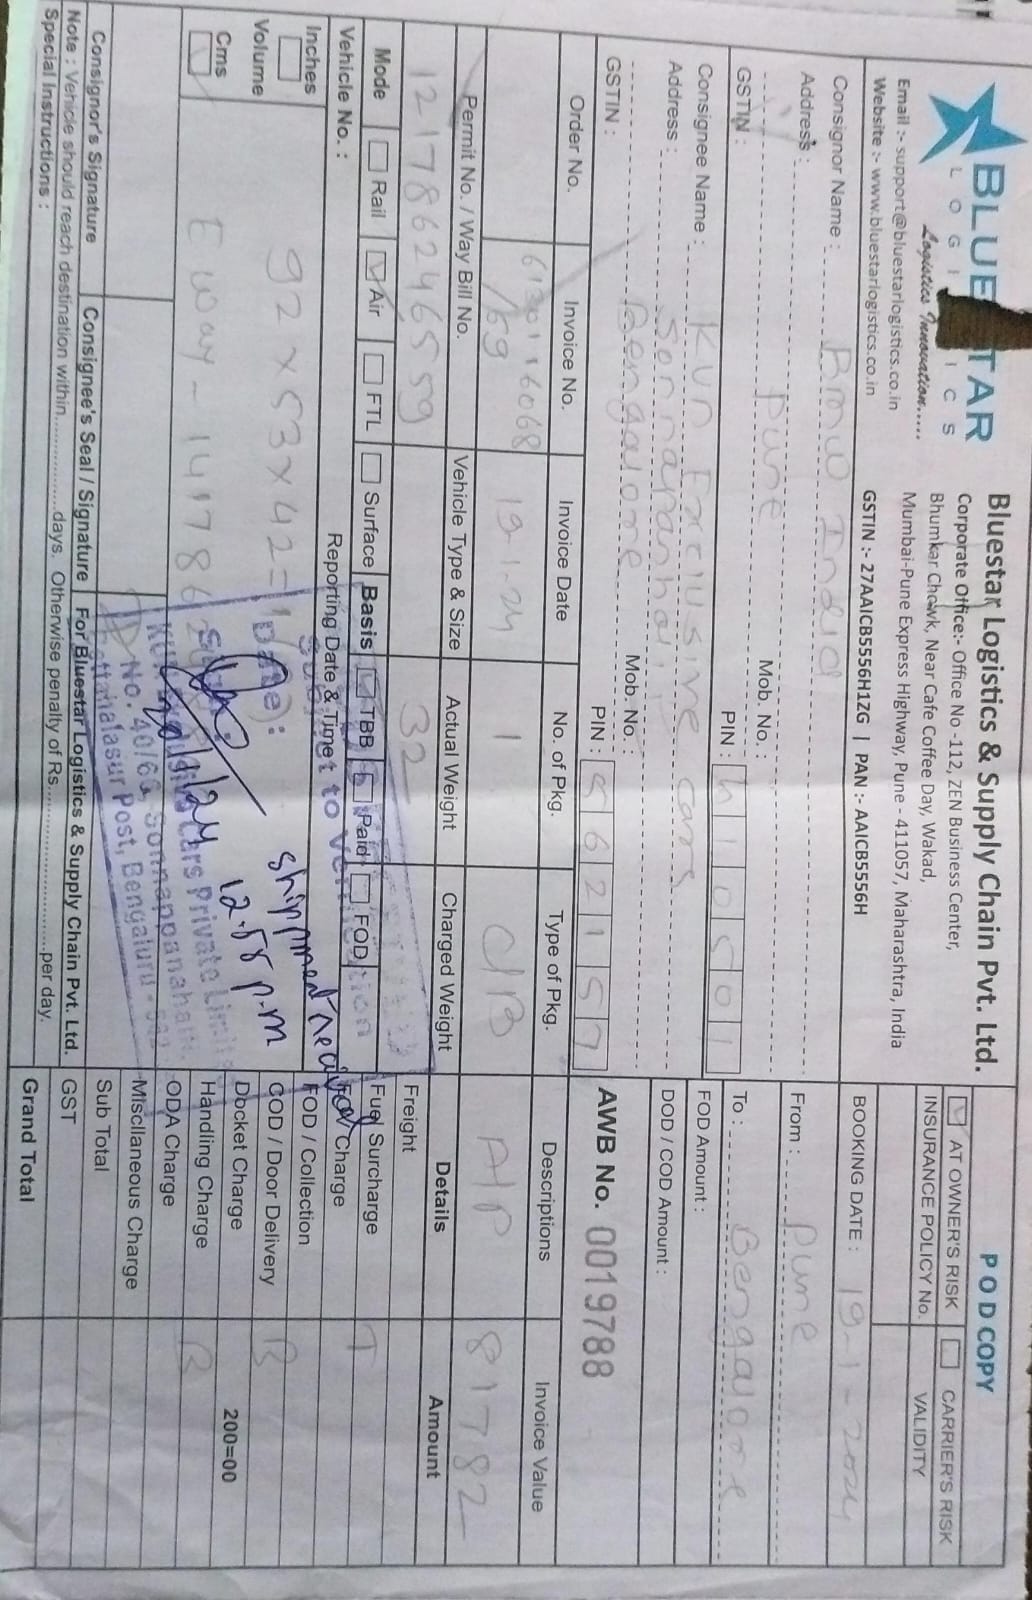 BLUE TAR
LOGI ICS
Logistics Innovation.....
Email :- support@bluestarlogistics.co.in
Website :- www.bluestarlogistics.co.in
Bluestar Logistics & Supply Chain Pvt. Ltd.
Corporate Office:- Office No -112, ZEN Business Center,
Bhumkar Chowk, Near Cafe Coffee Day, Wakad,
Mumbai-Pune Express Highway, Pune - 411057, Maharashtra, India
GSTIN :- 27AAICB5556H1ZG | PAN :- AAICB5556H
POD COPY
AT OWNER'S RISK CARRIER'S RISK
INSURANCE POLICY No. VALIDITY
BOOKING DATE : 19-1-2024
From : Pune
To : Bengalore
FOD Amount :
DOD / COD Amount :
AWB No. 0019788
Consignor Name : BMW India
Address :
Pune Mob. No. :
GSTIN : PIN : 410501
Consignee Name : KUN Exclusive cars
Address :
Bengalore Mob. No. :
GSTIN : PIN : 562157
Order No. Invoice No. Invoice Date No. of Pkg. Type of Pkg. Descriptions Invoice Value
6120116068 19-1-24 1 C/B A/P 81782
/69
Permit No. / Way Bill No. Vehicle Type & Size Actual Weight Charged Weight Details Amount
121786246559 32
Freight
Mode Rail Air FTL Surface Basis TBB Paid FOD
Fuel Surcharge T
Vehicle No. : Reporting Date & Time :
FOV Charge
FOD / Collection
COD / Door Delivery B
Docket Charge 200=00
Handling Charge B
ODA Charge
Miscllaneous Charge
Sub Total
GST
Grand Total
Inches
Volume
Cms
92 x 53 x 42 =
E way - 1417862
Subject to Verification
Date :
shipment received
20/1/24 12.55 p.m
KUN Exclusive Cars Private Limited
No. 40/6G, Sonnappanaha
ettahalasur Post, Bengaluru - 562
Consignor's Signature Consignee's Seal / Signature For Bluestar Logistics & Supply Chain Pvt. Ltd.
Note : Vehicle should reach destination within.................days. Otherwise penalty of Rs..............................per day.
Special Instructions :